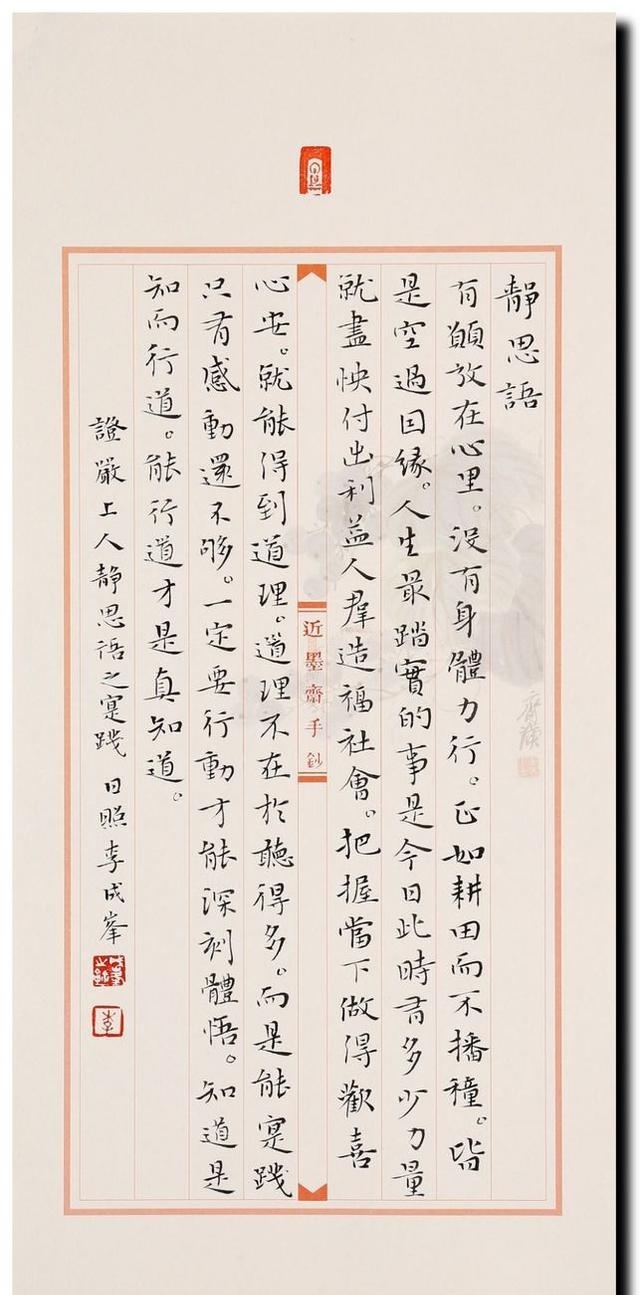 靜思語
有願放在心里。没有身體力行。正如耕田而不播種。皆
是空過因緣。人生最踏實的事是今日此時有多少力量
就盡快付出利益人羣造福社會。把握當下做得歡喜
近墨齋手鈔
心安。就能得到道理。道理不在於聽得多。而是能寔踐
只有感動還不够。一定要行動才能深刻體悟。知道是
知而行道。能行道才是真知道。
證嚴上人靜思語之寔踐 日照李成峯
李